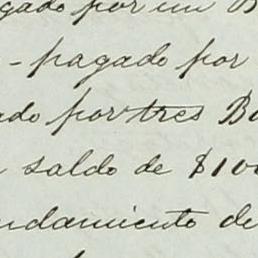 gado por un B
- pagado por
ado por tres Bo
saldo de $100
ndamiento de